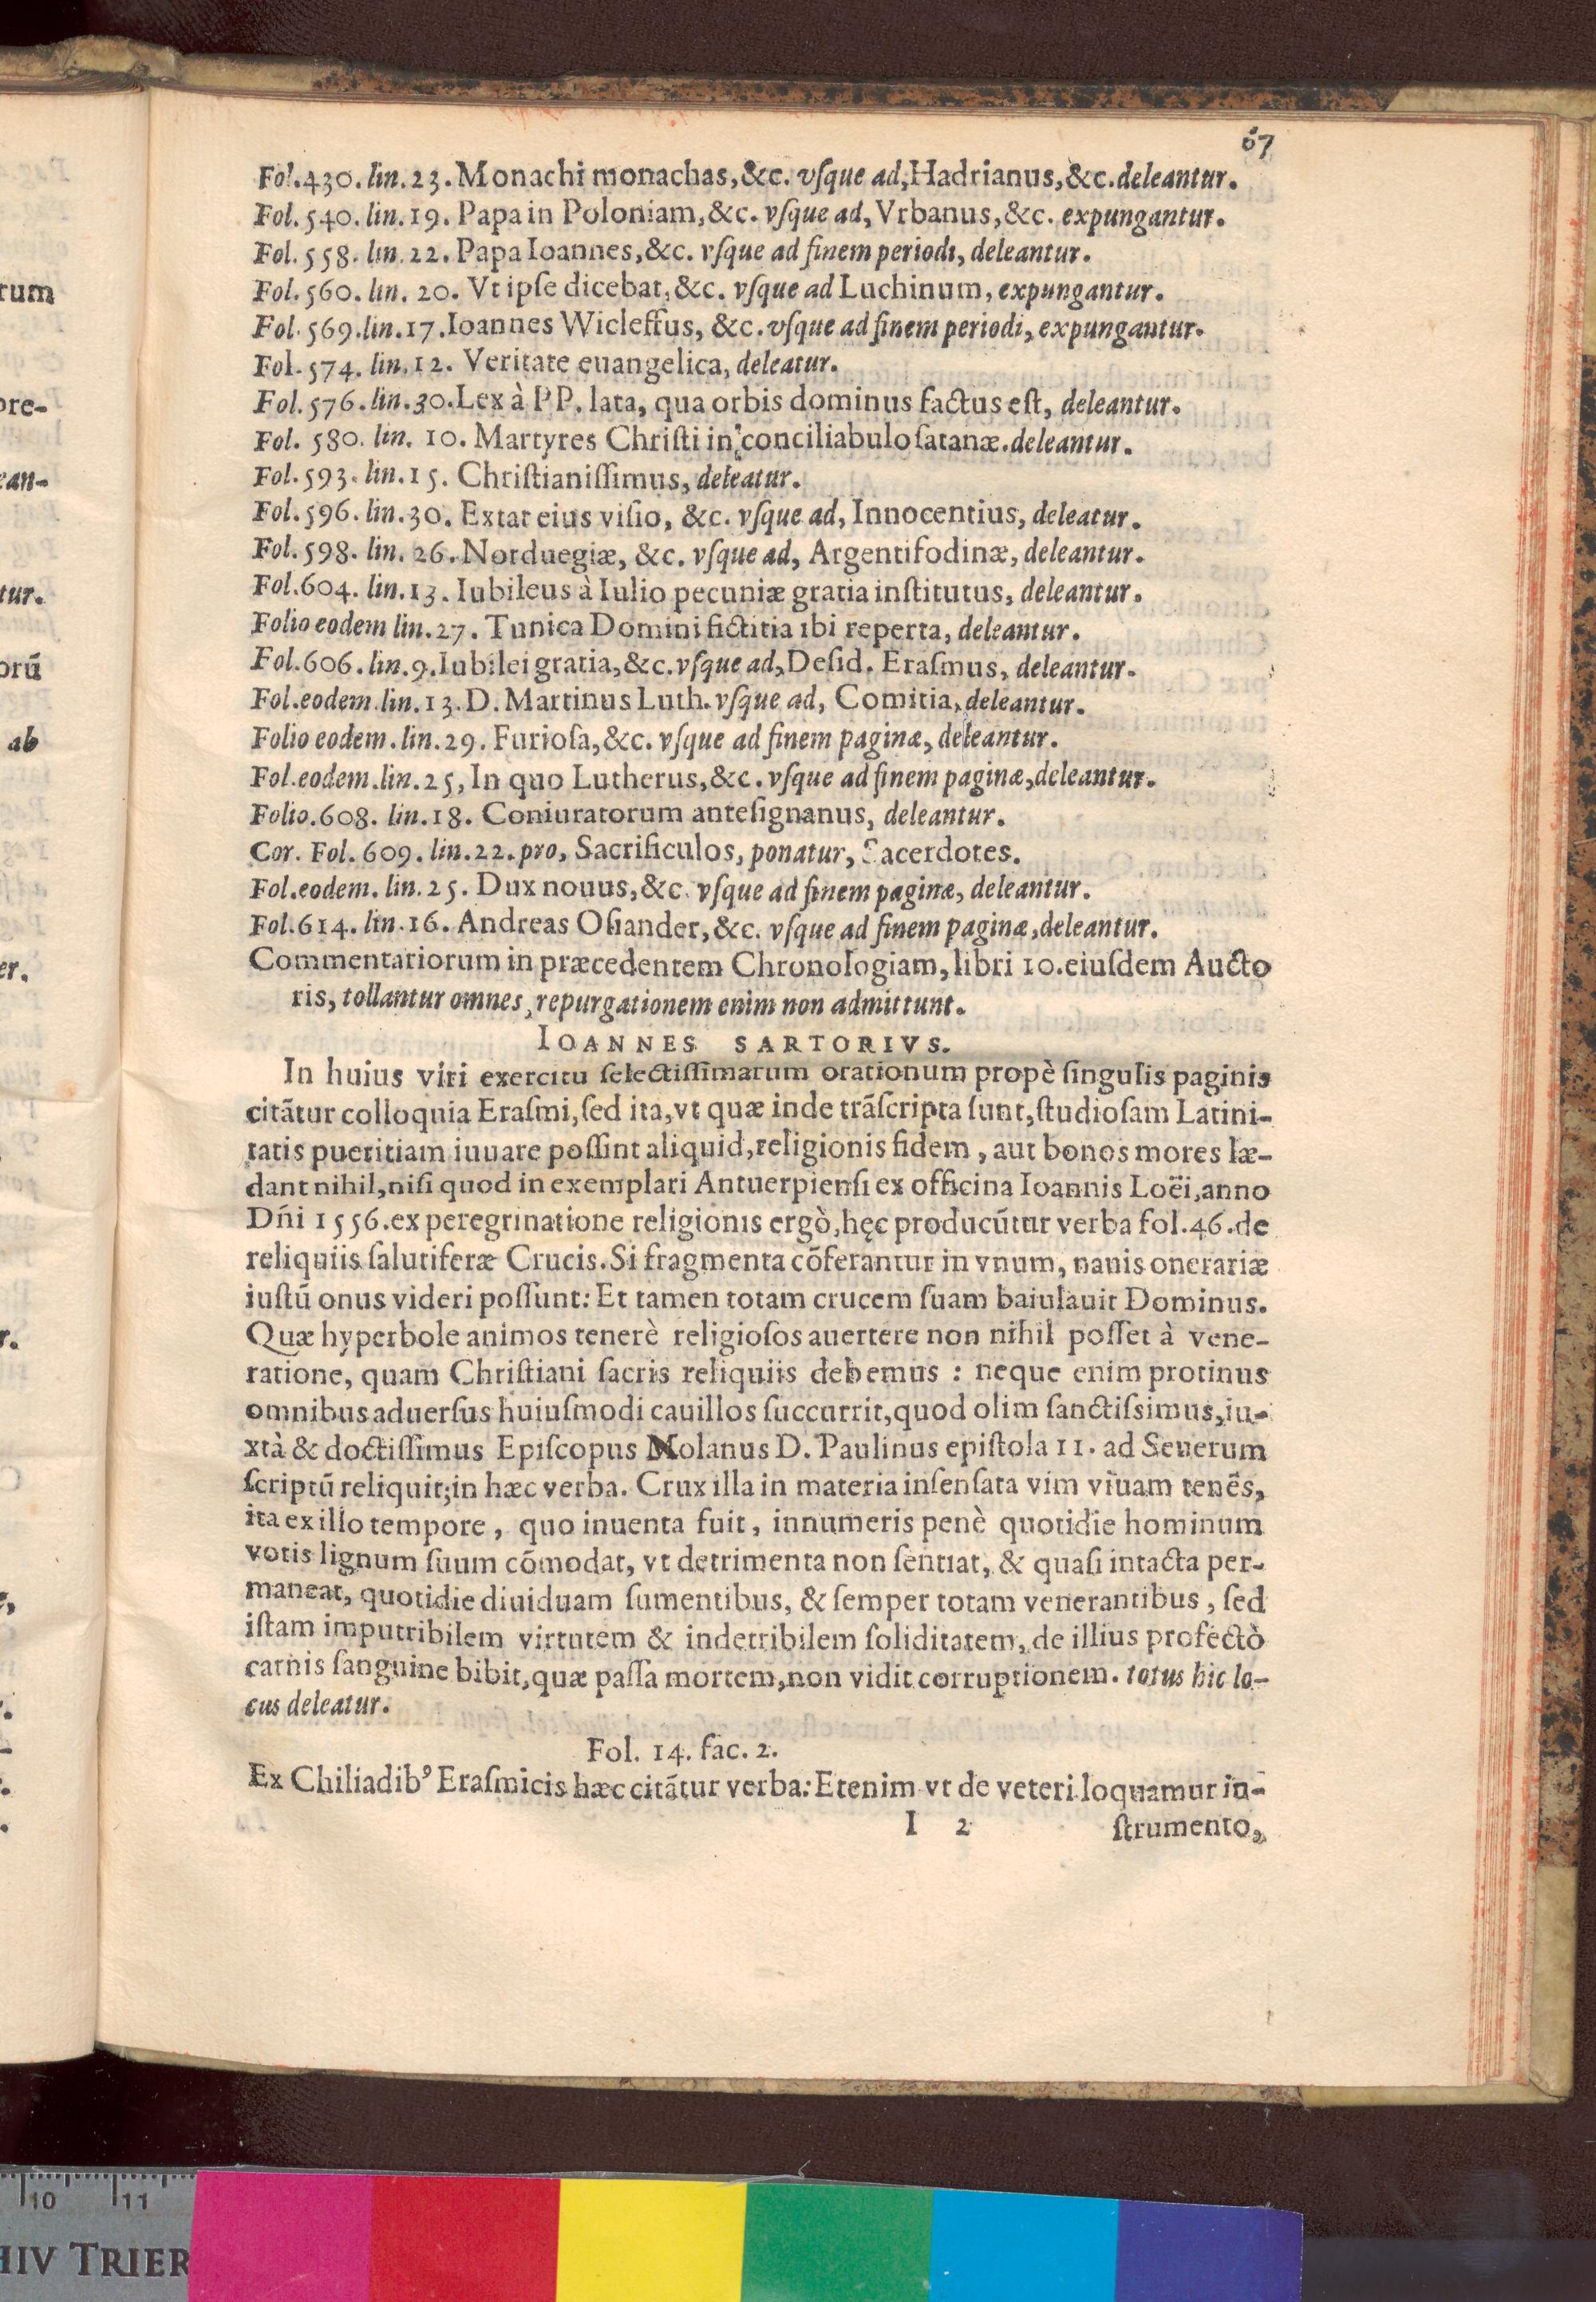 67
Fol.430.lin.23.Monachi monachas,&c. vſque ad,Hadrianus,&c.deleantur.
Fol. 540.lin.19. Papa in Poloniam,&c. vſque ad, Vrbanus,&c. expungantur.
Fol. 558. lin.22. Papa Ioannes,&c. vſque ad finem periodi, deleantur.
Fol. 560. lin. 20. Vt ipſe dicebat,&c. vſque ad Luchinum, expungantur.
Fol. 569.lin.17.Ioannes Wicleffus, &c.vſque ad finem periodi, expungantur.
Fol. 574. lin.12. Veritate euangelica, deleatur.
Fol. 576.lin.30.Lex à PP. lata, qua orbis dominus factus eſt, deleantur.
Fol. 580. lin. 10. Martyres Chriſti in conciliabulo ſatanæ.deleantur.
Fol. 593.lin.15. Chriſtianiſſimus, deleatur.
Fol. 596.lin.30. Extat eius viſio, &c. vſque ad, Innocentius, deleatur.
Fol. 598. lin. 26. Norduegiæ, &c. vſque ad, Argentifodinæ, deleantur.
Fol.604. lin.13. Iubileus à Iulio pecuniæ gratia inſtitutus, deleantur.
Folio eodem lin.27. Tunica Domini fictitia ibi reperta, deleantur.
Fol.606.lin.9.Iubilei gratia,&c.vſque ad,Deſid. Eraſmus, deleantur.
Fol.eodem.lin.13.D.Martinus Luth.vſque ad, Comitia,deleantur.
Folio eodem.lin.29. Furioſa,&c. vſque ad finem paginæ, deleantur.
Fol.eodem.lin.25, In quo Lutherus,&c. vſque ad finem paginæ,deleantur.
Folio.608. lin.18. Coniuratorum anteſignanus, deleantur.
Cor. Fol. 609. lin.22.pro, Sacrificulos, ponatur, Sacerdotes.
Fol.eodem. lin.25. Dux nouus,&c. vſque ad finem paginæ, deleantur.
Fol.614. lin.16. Andreas Oſiander,&c. vſque ad finem paginæ,deleantur.
Commentariorum in præcedentem Chronologiam, libri 10.eiuſdem Aucto
ris, tollantur omnes, repurgationem enim non admittunt.
IOANNES SARTORIVS.
In huius viri exercitu ſelectiſſimarum orationum propè ſingulis paginis
citātur colloquia Eraſmi, ſed ita,vt quæ inde trāſcripta ſunt,ſtudioſam Latini-
tatis pueritiam iuuare poſſint aliquid,religionis fidem, aut bonos mores læ-
dant nihil,niſi quod in exemplari Antuerpienſi ex officina Ioannis Loëi,anno
Dñi 1556.ex peregrinatione religionis ergò,hęc producūtur verba fol.46.de
reliquiis ſalutiferæ Crucis.Si fragmenta cōferantur in vnum, nauis onerariæ
iuſtū onus videri poſſunt: Et tamen totam crucem ſuam baiulauit Dominus.
Quæ hyperbole animos tenerè religioſos auertere non nihil poſſet à vene-
ratione, quam Chriſtiani ſacris reliquiis debemus : neque enim protinus
omnibus aduerſus huiuſmodi cauillos ſuccurrit,quod olim ſanctiſsimus,iu-
xtà & doctiſſimus Epiſcopus Nolanus D. Paulinus epiſtola 11. ad Seuerum
ſcriptū reliquit;in hæc verba. Crux illa in materia inſenſata vim viuam tenēs,
ita ex illo tempore, quo inuenta fuit, innumeris penè quotidie hominum
votis lignum ſuum cōmodat, vt detrimenta non ſentiat, & quaſi intacta per-
maneat, quotidie diuiduam ſumentibus, & ſemper totam venerantibus, ſed
iſtam imputribilem virtutem & indetribilem ſoliditatem, de illius profectò
carnis ſanguine bibit,quæ paſſa mortem,non vidit corruptionem. totus hic lo-
cus deleatur.
Fol. 14. fac. 2.
Ex Chiliadibꝰ Eraſmicis hæc citātur verba: Etenim vt de veteri loquamur in-
I 2 ſtrumento,
rum
ore-
ean-
tur.
orū
ab
er.
r.
10 11
HIV TRIER